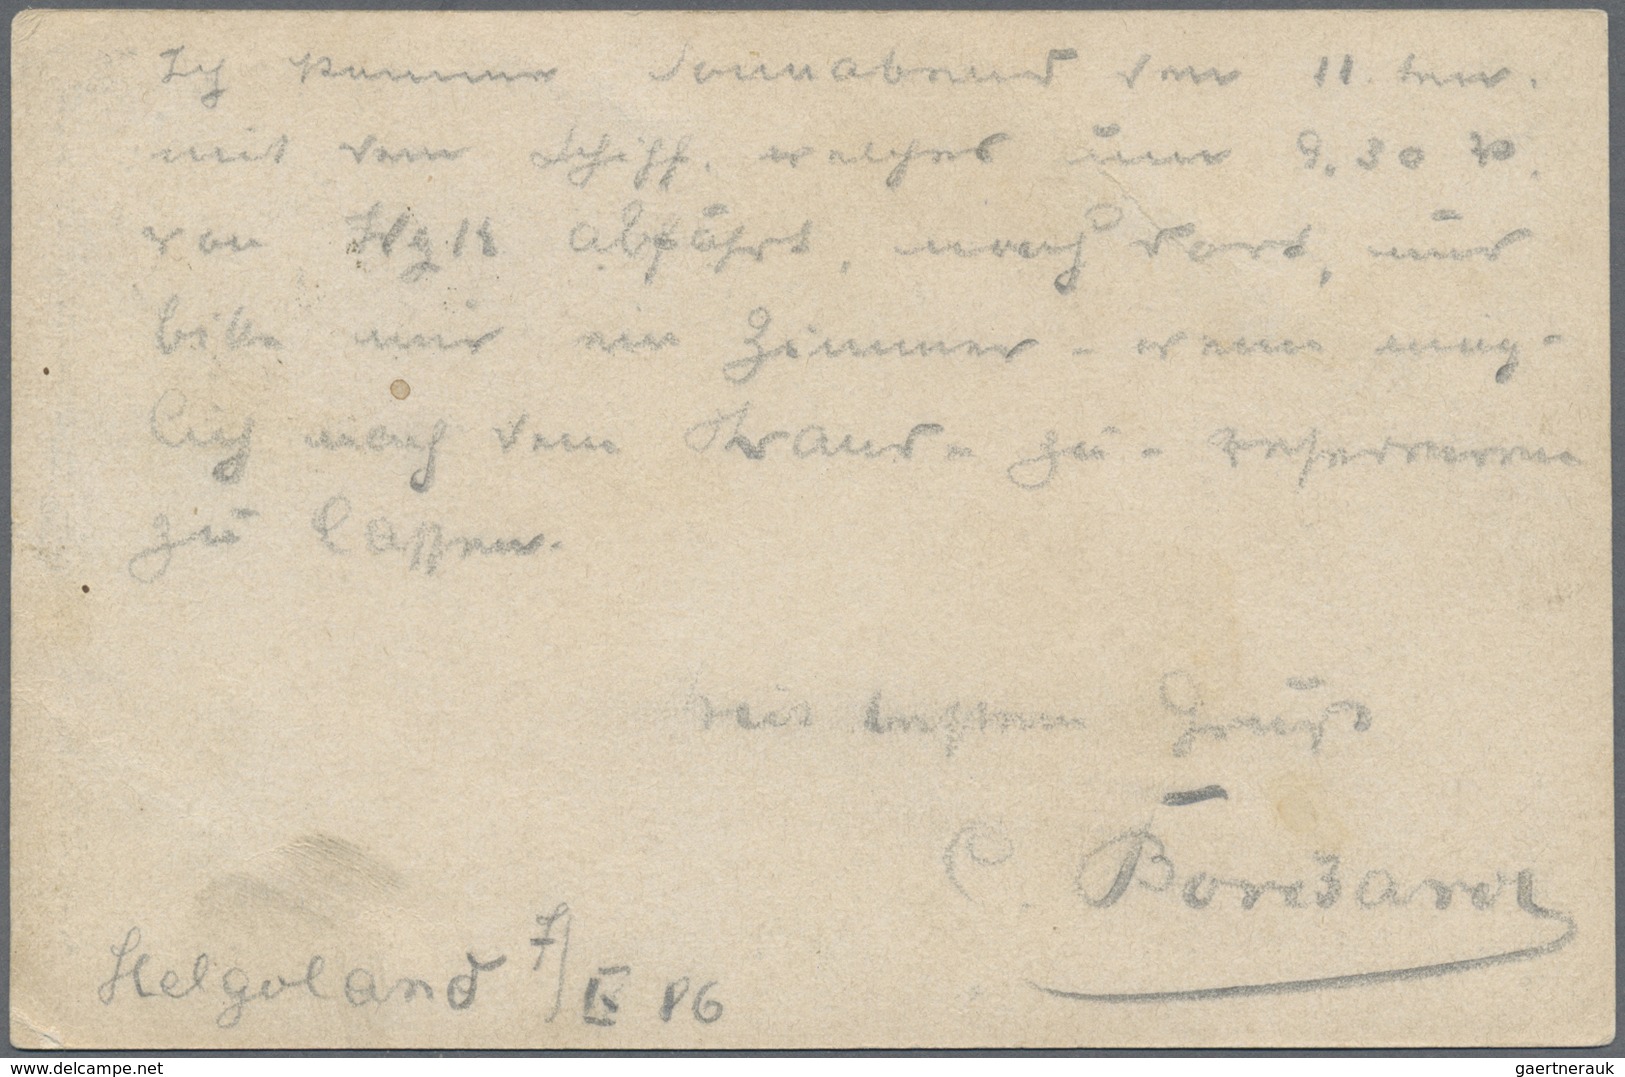 Ich komme Sonnabend den 11. ten.
mit dem Schiff, welches um 9.30
von abfährt, nach dort, und
bitte mir ein Zimmer - wenn mög-
lich nach dem Strand - zu - reserviren
zu lassen.
Mit bestem Gruss
C.
Helgoland 7/IX 86
www.delcampe.net
gaertnerauk